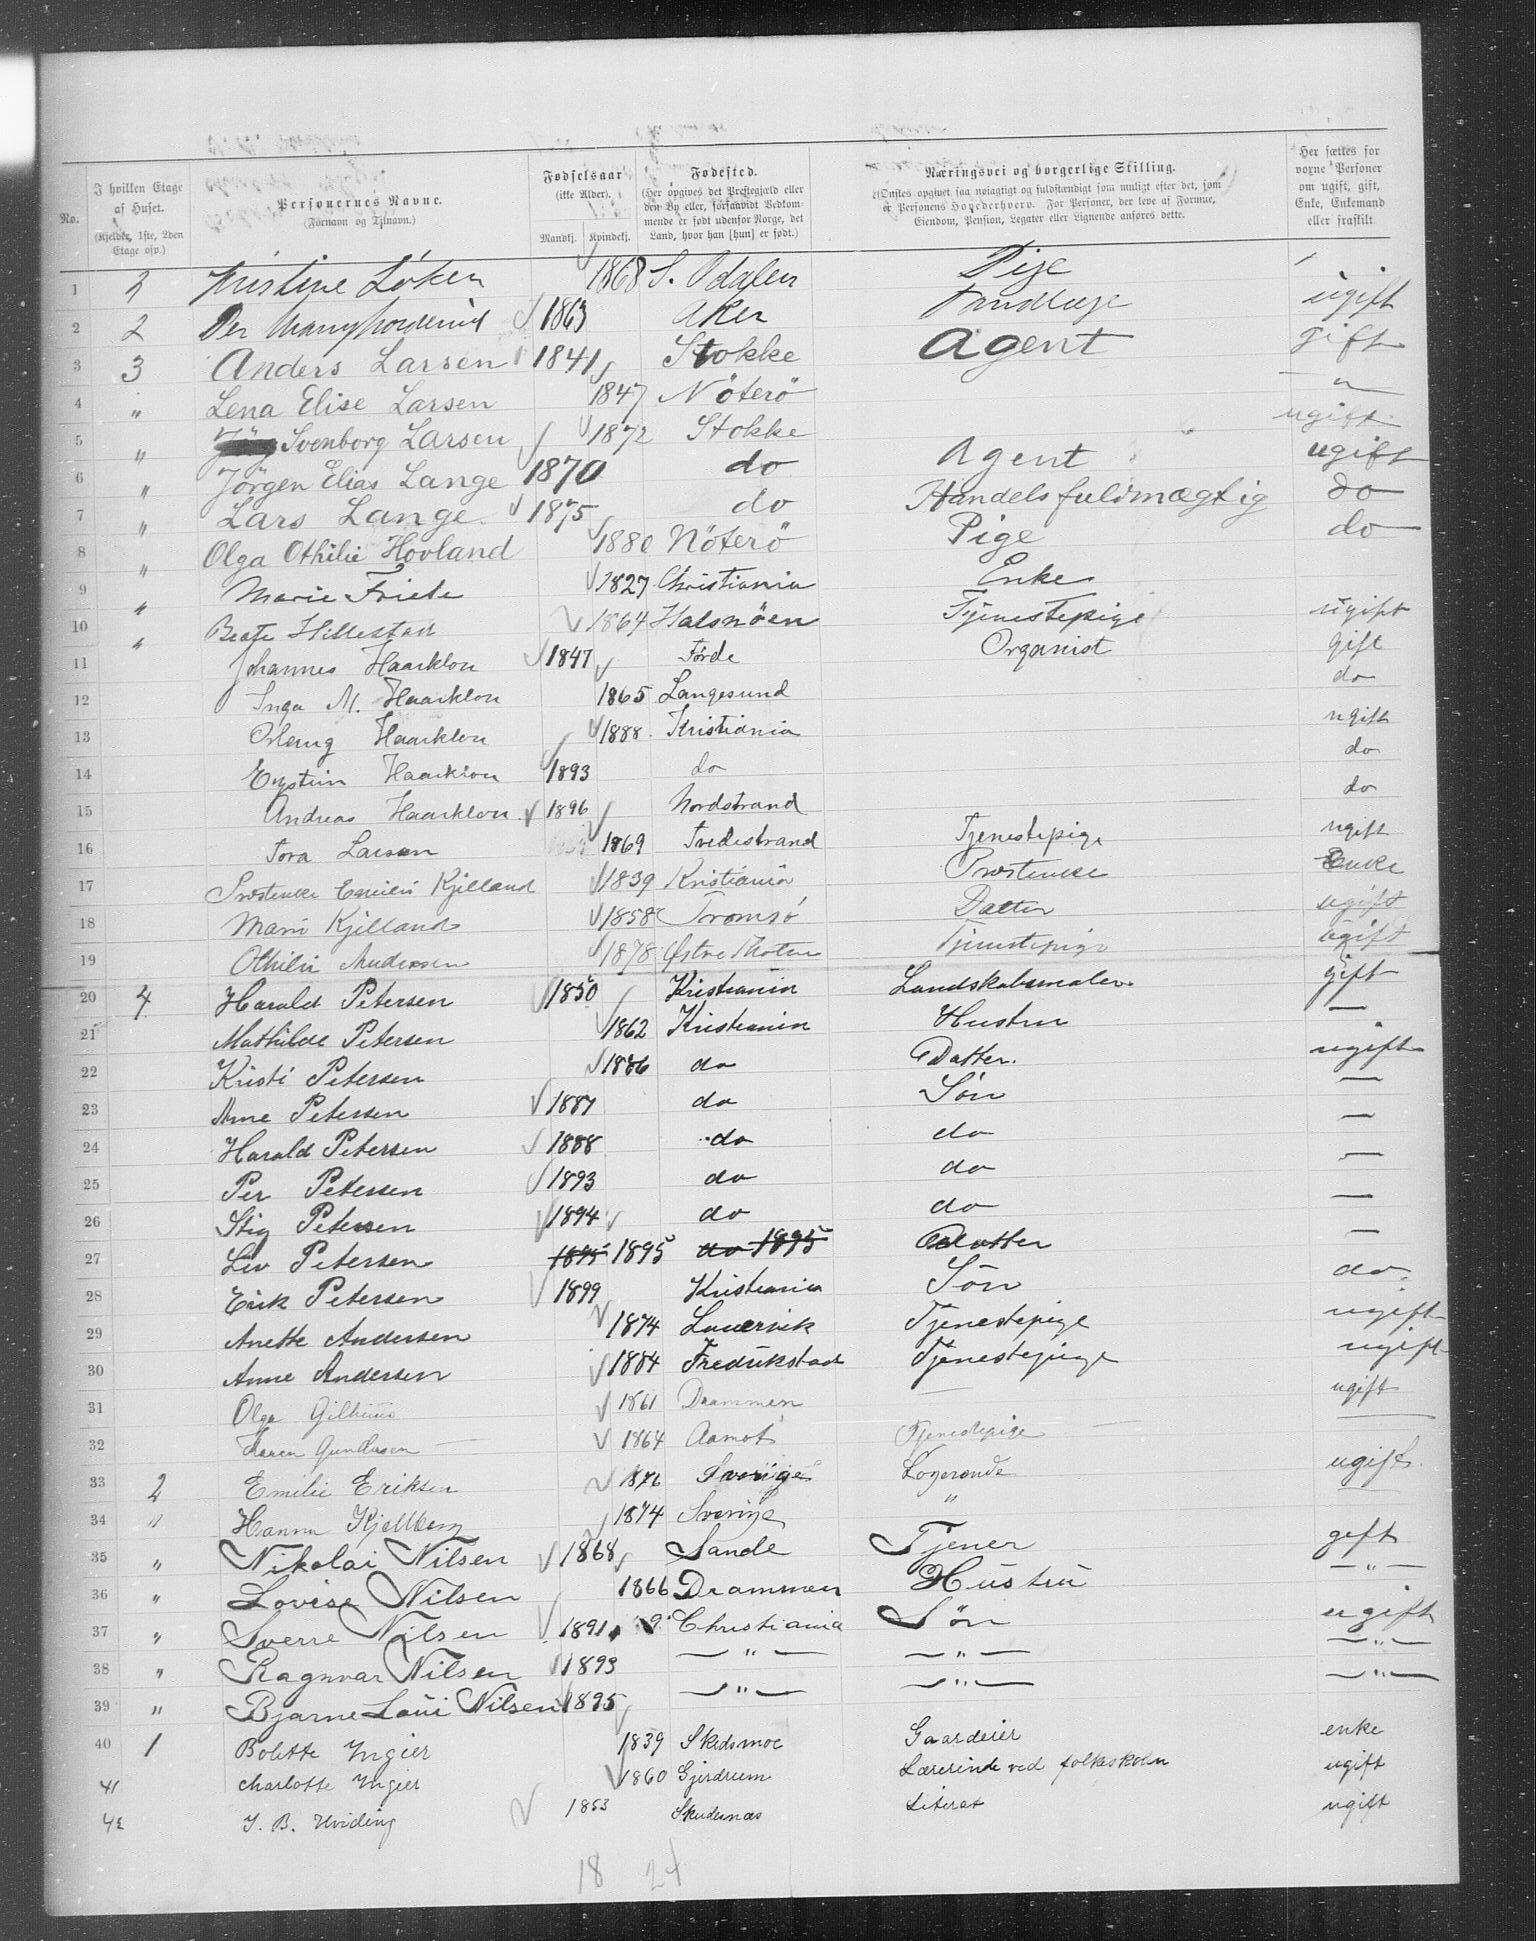 No.
I hvilken Etage af Huset.
(Kjelder, 1ste, 2den Etage osv.)
Personernes Navne.
(Fornavn og Tilnavn.)
Fødselsaar
(ikke Alder).
Mandkj. Kvindekj.
Fødested.
(Her opgives det Prestegjæld eller den By eller, forsaavidt Vedkommende er født udenfor Norge, det Land, hvor han [hun] er født.)
Næringsvei og borgerlige Stilling.
(Ønskes opgivet saa nøiagtigt og fuldstændigt som muligt efter det, som er Personens Hovederhverv. For Personer, der leve af Formue, Eiendom, Pension, Legater eller Lignende anføres dette.
Her sættes for voxne Personer om ugift, gift, Enke, Enkemand eller fraskilt
1 2 Kristine Löken 1868 S. Odalen Pige
2 2 Per 1863 Aker Tandlæge ugift
3 3 Anders Larsen 1841 Stokke Agent gift
4 " Lena Elise Larsen 1847 Nöterö "
5 " Svenborg Larsen 1872 Stokke ugift
6 " Jörgen Elias Lange 1870 do Agent ugift
7 " Lars Lange 1875 do Handelsfuldmægtig do
8 " Olga Othilie Hovland 1880 Nöterö Pige do
9 " Marie Friele 1827 Christiania Enke
10 " Beate Hillestad 1864 Halsnöen Tjenestepige ugift
11 Johannes Haarklou 1847 Førde Organist gift
12 Inga M. Haarklou 1865 Langesund do
13 Oslaug Haarklou 1888 Kristiania ugift
14 Eystein Haarklou 1893 do do
15 Andreas Haarklou 1896 Nordstrand do
16 Tora Larsen 1869 Tvedestrand Tjenestepige ugift
17 Prostenke Emilie Kjelland 1839 Kristiania Prostenke Enke
18 Marie Kjelland 1858 Tromsö Datter ugift
19 Othilie Andersen 1878 Østre Thoten Tjenestepige ugift
20 4 Harald Petersen 1850 Kristiania Landskabsmaler gift
21 Mathilde Petersen 1862 Kristiania Hustru —
22 Kristi Petersen 1886 do Datter. ugift
23 Arne Petersen 1887 do Søn —
24 Harald Petersen 1888 do do —
25 Per Petersen 1893 do do —
26 Stig Petersen 1894 do do —
27 Liv Petersen 1895 1895 do 1895 Datter —
28 Erik Petersen 1899 Kristiania Søn do
29 Anette Andersen 1874 Laurvik Tjenestepige ugift
30 Anne Andersen 1884 Fredrikstad Tjenestepige ugift
31 Olga 1861 Drammen — ugift
32 Karen Gundersen 1864 Aamot Tjenestepige —
33 2 Emilie Eriksen 1876 Sverige Logerende ugift
34 " Hanna Kjellberg 1874 Sverige " —
35 " Nikolai Nilsen 1868 Sande Tjener gift
36 " Lovise Nilsen 1866 Drammen Hustru — " —
37 " Sverre Nilsen 1891 Christiania Søn ugift
38 " Ragnvar Nilsen 1893 — " — — " — — " —
39 " Bjarne Loui Nilsen 1895 — " — — " — — " —
40 1 Bolette Yngier 1839 Skedsmoe Gaardeier enke
41 Charlotte Yngier 1860 Gjerdrum Lærerinde ved folkeskolen ugift
42 J. B. Hviding 1853 Skudenæs Literat ugift
18 24